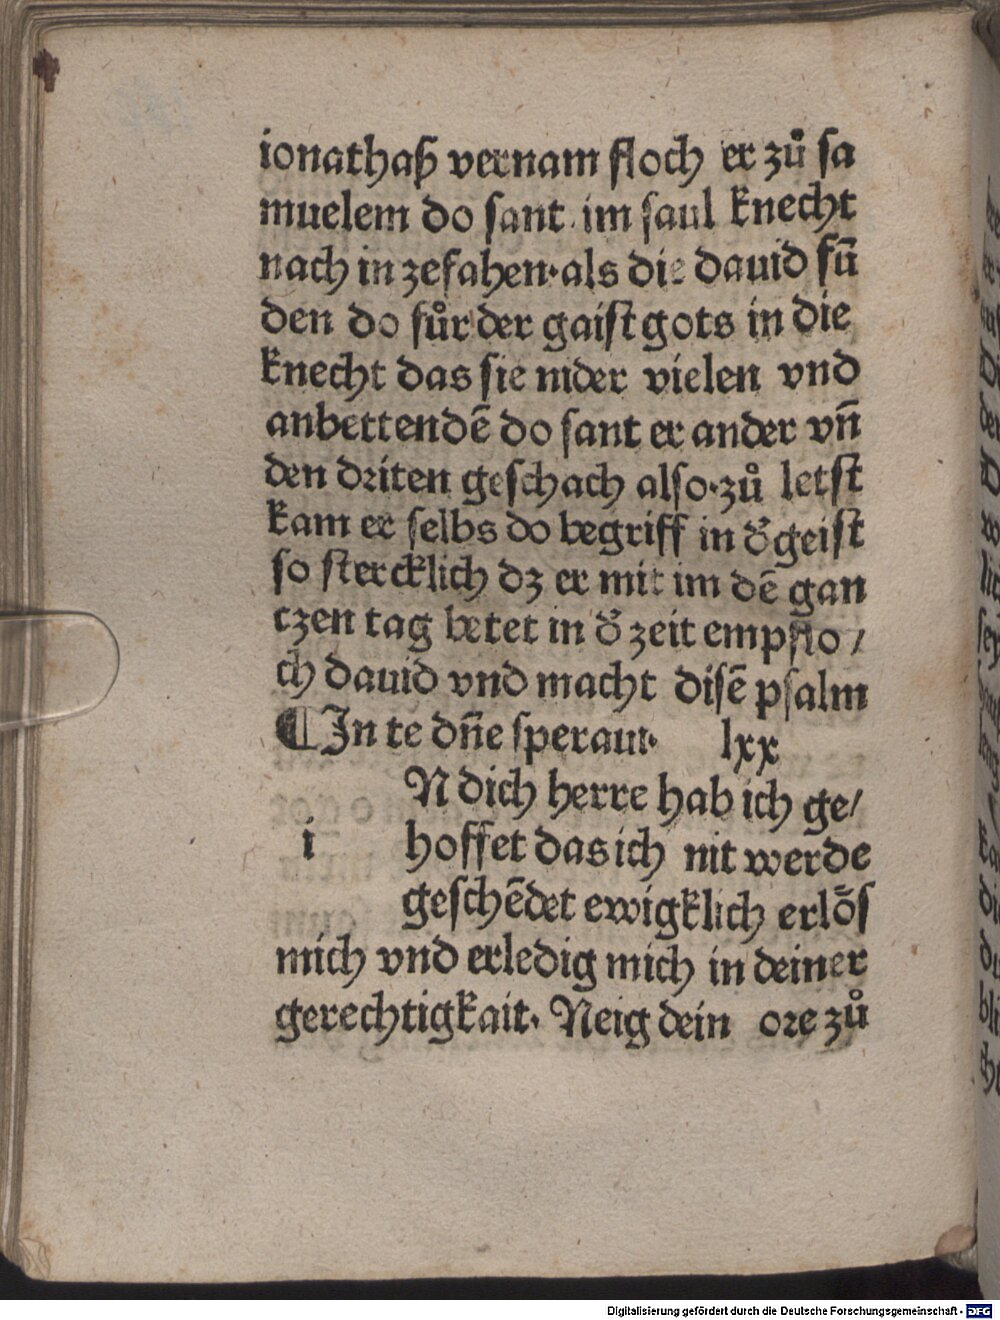 ionathaß vernam floch er zů ſa
muelem do ſant im ſaul knecht
nach in zefahen·als die dauid fū
den do fůr der gaiſt gots in die
knecht das ſie nider vielen vnd
anbettendē do ſant er ander vn̄
den driten geſchach alſo·zů letſt
kam er ſelbs do begriff in d̕ geiſt
ſo ſtercklich dz er mit im dē gan
czen tag betet in d̕ zeit empflo/
ch dauid vnd macht diſē pſalm
¶In te dn̄e ſperaui· lxx
N dich herre hab ich ge/
i hoffet das ich nit werde
geſchēdet ewigklich erlo᷑s
mich vnd erledig mich in deiner
gerechtigkait. Neig dein ore zů
Digitalisierung gefördert durch die Deutsche Forschungsgemeinschaft - DFG